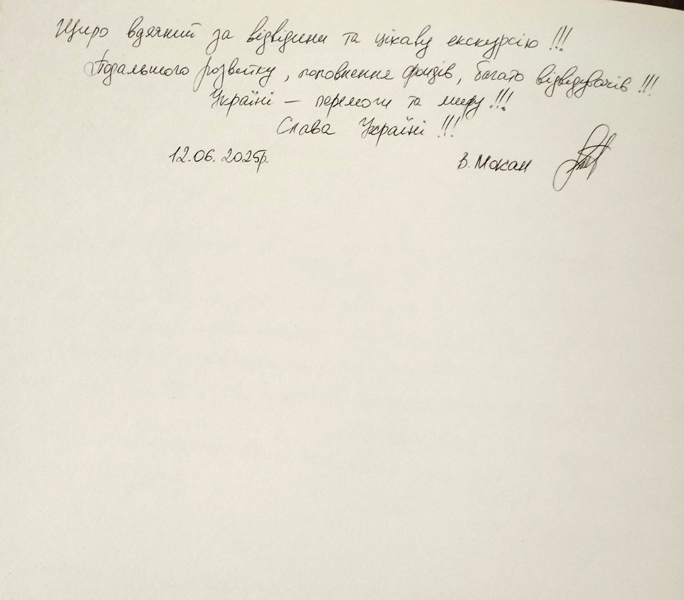 Щиро вдячний за відвідини та цікаву екскурсію !!!
Подальшого розвитку, поповнення фондів, багато відвідувачів !!!
Україні – перемоги та миру !!!
Слава Україні !!!
12.06.2025р. В. Мокан